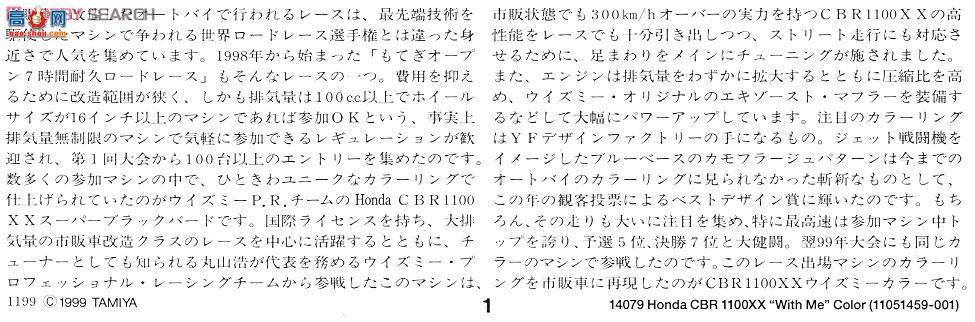 オートバイで行われるレースは、最先端技術を
したマシンで争われる世界ロードレース選手権とは違った身
近さで人気を集めています。1998年から始まった「もてぎオープ
ン7時間耐久ロードレース」もそんなレースの一つ。費用を抑え
るために改造範囲が狭く、しかも排気量は100cc以上でホイール
サイズが16インチ以上のマシンであれば参加OKという、事実上
排気量無制限のマシンで気軽に参加できるレギュレーションが歓
迎され、第1回大会から100台以上のエントリーを集めたのです。
数多くの参加マシンの中で、ひときわユニークなカラーリングで
仕上げられていたのがウイズミーP.R.チームのHonda CBR1100
XXスーパーブラックバードです。国際ライセンスを持ち、大排
気量の市販車改造クラスのレースを中心に活躍するとともに、チ
ューナーとしても知られる丸山浩が代表を務めるウイズミー・プ
ロフェッショナル・レーシングチームから参戦したこのマシンは、
市販状態でも300km/hオーバーの実力を持つCBR1100XXの高
性能をレースでも十分引き出しつつ、ストリート走行にも対応さ
せるために、足まわりをメインにチューニングが施されました。
また、エンジンは排気量をわずかに拡大するとともに圧縮比を高
め、ウイズミー・オリジナルのエキゾースト・マフラーを装備す
るなどして大幅にパワーアップしています。注目のカラーリング
はYFデザインファクトリーの手になるもの。ジェット戦闘機を
イメージしたブルーベースのカモフラージュパターンは今までの
オートバイのカラーリングに見られなかった斬新なものとして、
この年の観客投票によるベストデザイン賞に輝いたのです。もち
ろん、その走りも大いに注目を集め、特に最高速は参加マシン中ト
ップを誇り、予選5位、決勝7位と大健闘。翌99年大会にも同じカ
ラーのマシンで参戦したのです。このレース出場マシンのカラーリ
ングを市販車に再現したのがCBR1100XXウイズミーカラーです。
1199 ©1999 TAMIYA
1
14079 Honda CBR 1100XX “With Me” Color (11051459-001)